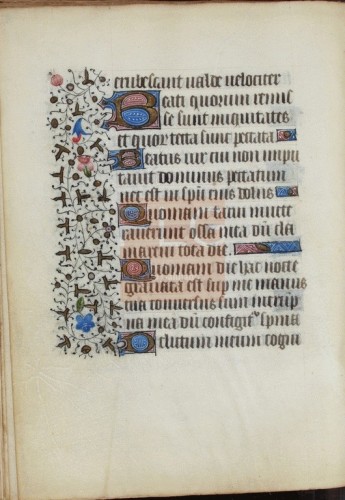 erubescant valde velociter
Beati quorum remis
se sunt iniquitates
et quor tecta sunt peccata
Beatus vir cui non impu
tavit dominus peccatum
nec est in spu eius dolus
Quoniam tacui invete
raverunt ossa mea du cla
marem tota die
Quoniam die hac nocte
gravata est sup me manus
tua conversus sum in erup
na mea du configit spina
Delictum meum cogni